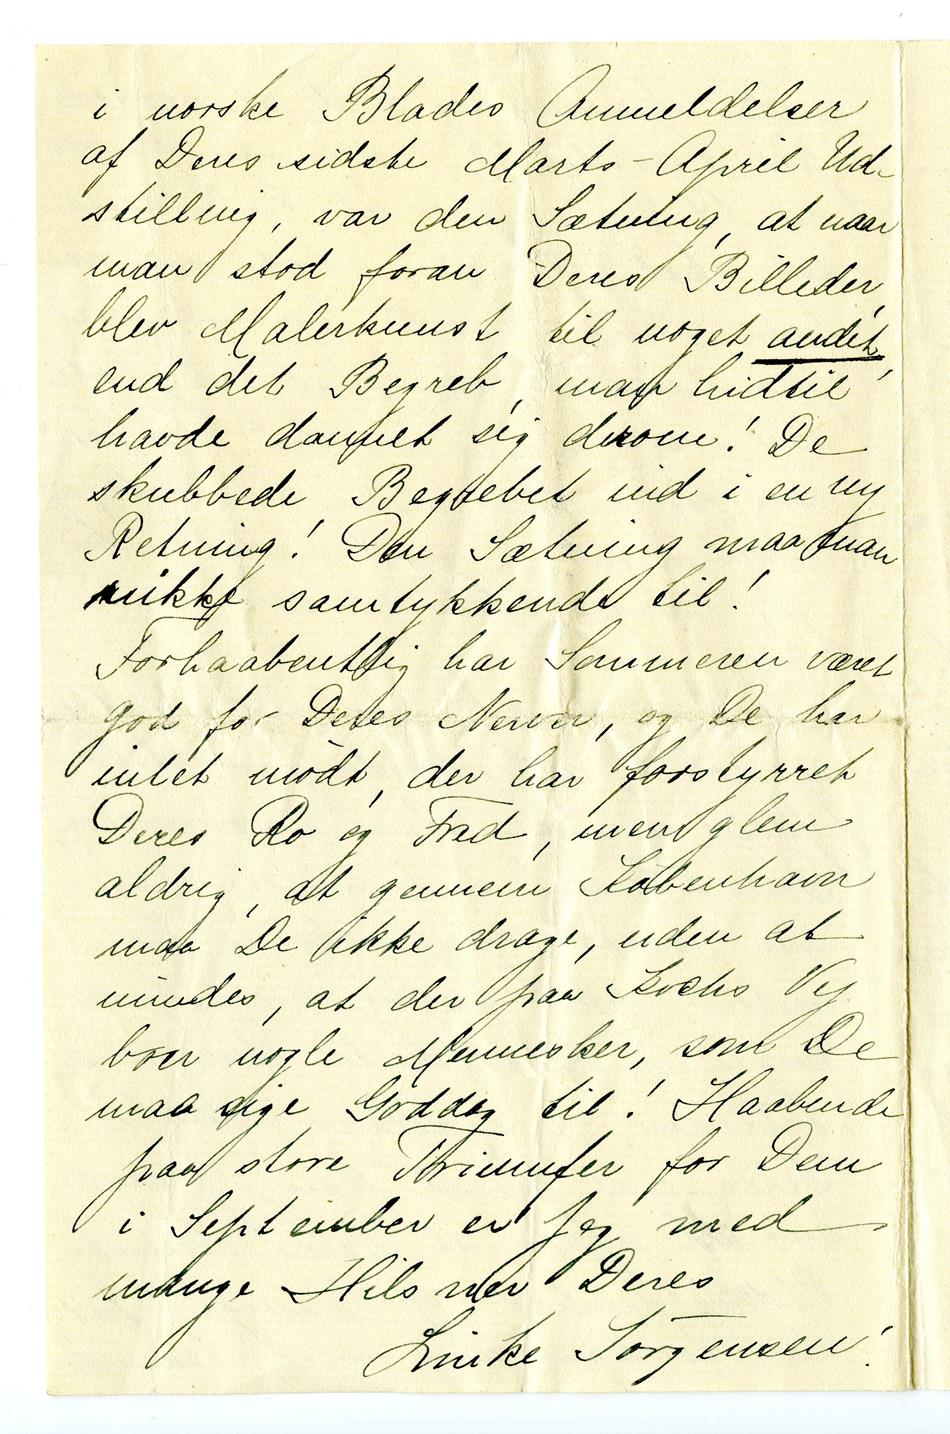 i norske Blades Anmeldelser
af Deres sidste Marts-April Ud-
stilling, var den Sætning, at naar
man stod foran Deres Billeder,
blev Malerkunst til noget andet,
end det Begreb, man hidtil
havde dannet sig derom! De
skubbede Begrebet ind i en ny
Retning! Den Sætning maa man
nikke samtykkende til!
Forhaabentlig har Sommeren været
god for Deres Nerver, og De har
intet mødt, der har forstyrret
Deres Ro og Fred, men glem
aldrig, at gennem København
maa De ikke drage, uden at
mindes, at der paa Kochs Vej
boer nogle Mennesker, som De
maa sige Goddag til! Haabende
paa store Triumfer for Dem
i September er jeg med
mange Hilsner Deres
Linke Jörgensen!